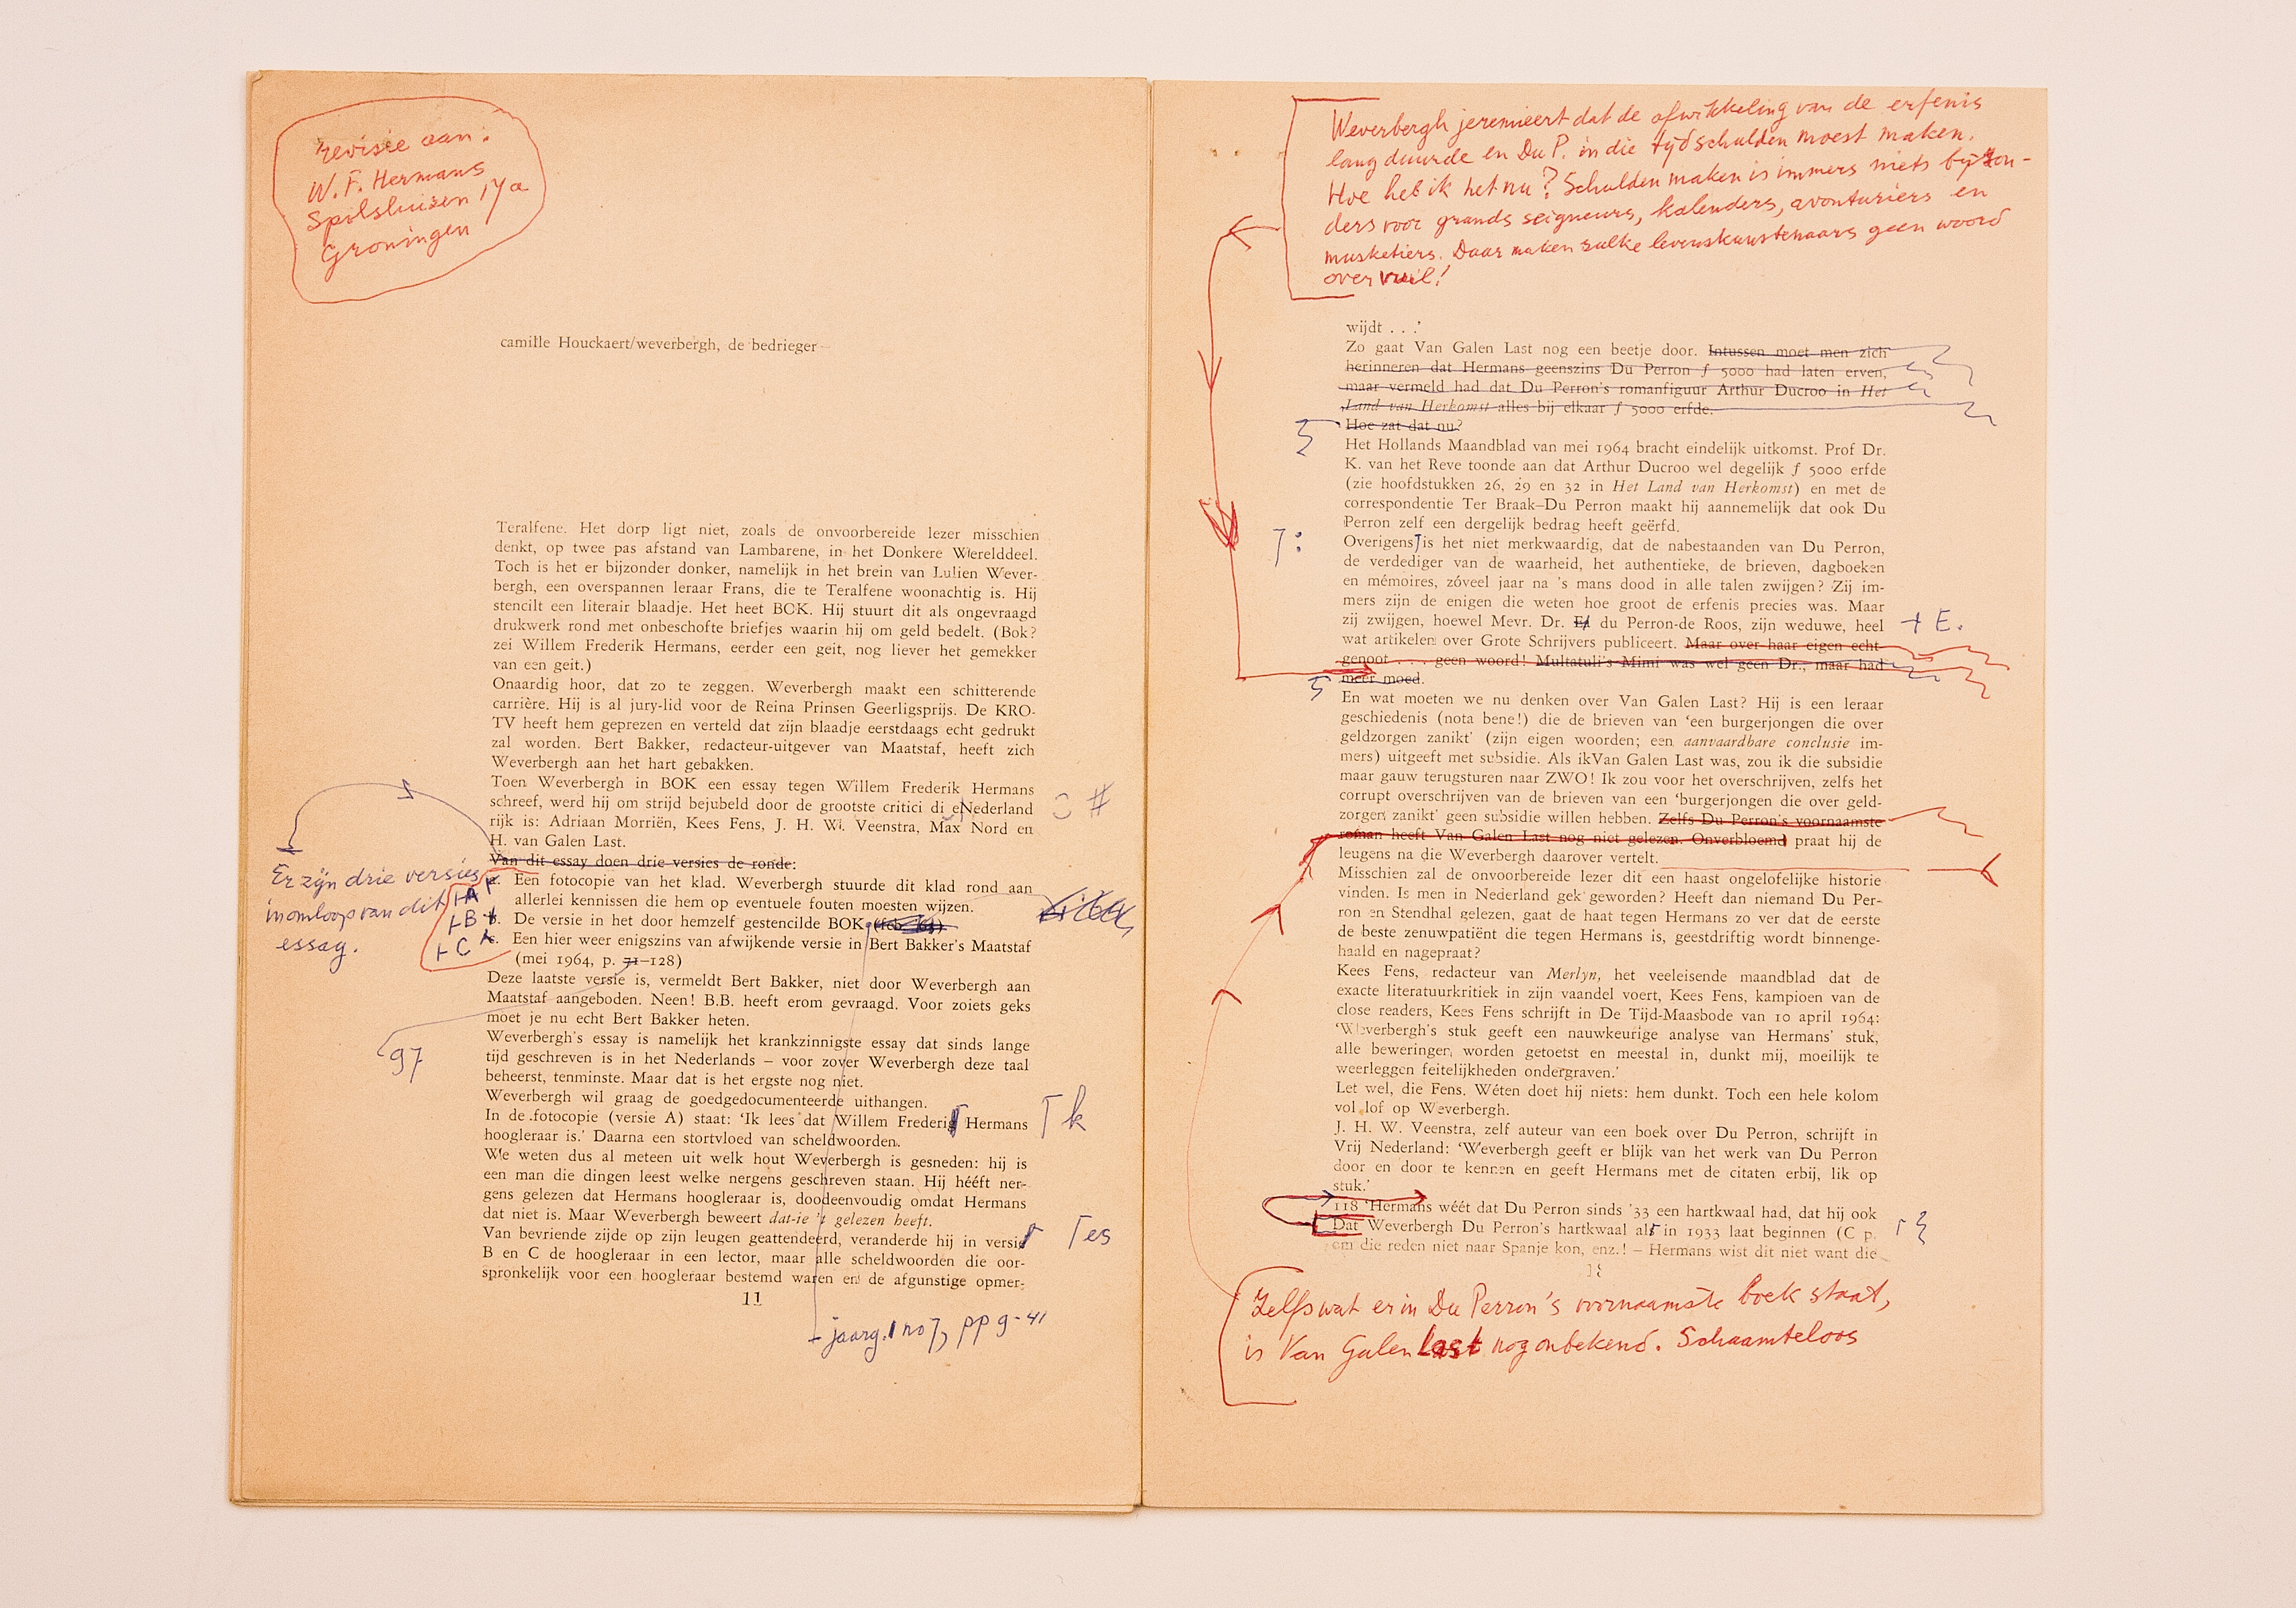 revisie aan:
W. F. Hermans
Spilsluizen 17a
Groningen
camille Houckaert/weverbergh, de bedrieger
Teralfene. Het dorp ligt niet, zoals de onvoorbereide lezer misschien
denkt, op twee pas afstand van Lambarene, in het Donkere Werelddeel.
Toch is het er bijzonder donker, namelijk in het brein van Lulien Wever-
bergh, een overspannen leraar Frans, die te Teralfene woonachtig is. Hij
stencilt een literair blaadje. Het heet BOK. Hij stuurt dit als ongevraagd
drukwerk rond met onbeschofte briefjes waarin hij om geld bedelt. (Bok?
zei Willem Frederik Hermans, eerder een geit, nog liever het gemekker
van een geit.)
Onaardig hoor, dat zo te zeggen. Weverbergh maakt een schitterende
carrière. Hij is al jury-lid voor de Reina Prinsen Geerligsprijs. De KRO-
TV heeft hem geprezen en verteld dat zijn blaadje eerstdaags echt gedrukt
zal worden. Bert Bakker, redacteur-uitgever van Maatstaf, heeft zich
Weverbergh aan het hart gebakken.
Toen Weverbergh in BOK een essay tegen Willem Frederik Hermans
schreef, werd hij om strijd bejubeld door de grootste critici di eNederland
rijk is: Adriaan Morriën, Kees Fens, J. H. W. Veenstra, Max Nord en
H. van Galen Last.
Van dit essay doen drie versies de ronde:
Er zijn drie versies
in omloop van dit
essay.
A
B
C
a. Een fotocopie van het klad. Weverbergh stuurde dit klad rond aan
allerlei kennissen die hem op eventuele fouten moesten wijzen.
b. De versie in het door hemzelf gestencilde BOK
c. Een hier weer enigszins van afwijkende versie in Bert Bakker's Maatstaf
(mei 1964, p. 71–128)
Deze laatste versie is, vermeldt Bert Bakker, niet door Weverbergh aan
Maatstaf aangeboden. Neen! B.B. heeft erom gevraagd. Voor zoiets geks
moet je nu echt Bert Bakker heten.
97
Weverbergh's essay is namelijk het krankzinnigste essay dat sinds lange
tijd geschreven is in het Nederlands – voor zover Weverbergh deze taal
beheerst, tenminste. Maar dat is het ergste nog niet.
Weverbergh wil graag de goedgedocumenteerde uithangen.
In de fotocopie (versie A) staat: 'Ik lees dat Willem Frederi Hermans
k
hoogleraar is.' Daarna een stortvloed van scheldwoorden.
We weten dus al meteen uit welk hout Weverbergh is gesneden: hij is
een man die dingen leest welke nergens geschreven staan. Hij hééft ner-
gens gelezen dat Hermans hoogleraar is, doodeenvoudig omdat Hermans
dat niet is. Maar Weverbergh beweert dat-ie 't gelezen heeft.
Van bevriende zijde op zijn leugen geattendeerd, veranderde hij in versi
es
B en C de hoogleraar in een lector, maar alle scheldwoorden die oor-
spronkelijk voor een hoogleraar bestemd waren en de afgunstige opmer-
11
jaarg. 1 no 7, pp 9-41
Weverbergh jeremieert dat de afwikkeling van de erfenis
lang duurde en Du P. in die tijd schulden moest maken.
Hoe heb ik het nu? Schulden maken is immers niets bijzon-
ders voor grands seigneurs, kalenders, avonturiers en
musketiers. Daar maken zulke levenskunstenaars geen woord
over vuil!
wijdt . . .'
Zo gaat Van Galen Last nog een beetje door. Intussen moet men zich
herinneren dat Hermans geenszins Du Perron f 5000 had laten erven,
maar vermeld had dat Du Perron's romanfiguur Arthur Ducroo in Het
Land van Herkomst alles bij elkaar f 5000 erfde.
Hoe zat dat nu?
Het Hollands Maandblad van mei 1964 bracht eindelijk uitkomst. Prof Dr.
K. van het Reve toonde aan dat Arthur Ducroo wel degelijk f 5000 erfde
(zie hoofdstukken 26, 29 en 32 in Het Land van Herkomst) en met de
correspondentie Ter Braak–Du Perron maakt hij aannemelijk dat ook Du
Perron zelf een dergelijk bedrag heeft geërfd.
Overigens is het niet merkwaardig, dat de nabestaanden van Du Perron,
:
de verdediger van de waarheid, het authentieke, de brieven, dagboeken
en mémoires, zóveel jaar na 's mans dood in alle talen zwijgen? Zij im-
mers zijn de enigen die weten hoe groot de erfenis precies was. Maar
zij zwijgen, hoewel Mevr. Dr. du Perron-de Roos, zijn weduwe, heel
E.
wat artikelen over Grote Schrijvers publiceert. Maar over haar eigen echt-
genoot . . . . geen woord! Multatuli's Mimi was wel geen Dr., maar had
meer moed.
En wat moeten we nu denken over Van Galen Last? Hij is een leraar
geschiedenis (nota bene!) die de brieven van 'een burgerjongen die over
geldzorgen zanikt' (zijn eigen woorden; een aanvaardbare conclusie im-
mers) uitgeeft met subsidie. Als ikVan Galen Last was, zou ik die subsidie
maar gauw terugsturen naar ZWO! Ik zou voor het overschrijven, zelfs het
corrupt overschrijven van de brieven van een 'burgerjongen die over geld-
zorgen zanikt' geen subsidie willen hebben. Zelfs Du Perron's voornaamste
roman heeft Van Galen Last nog niet gelezen. Onverbloemd praat hij de
leugens na die Weverbergh daarover vertelt.
Misschien zal de onvoorbereide lezer dit een haast ongelofelijke historie
vinden. Is men in Nederland gek geworden? Heeft dan niemand Du Per-
ron en Stendhal gelezen, gaat de haat tegen Hermans zo ver dat de eerste
de beste zenuwpatiënt die tegen Hermans is, geestdriftig wordt binnenge-
haald en nagepraat?
Kees Fens, redacteur van Merlyn, het veeleisende maandblad dat de
exacte literatuurkritiek in zijn vaandel voert, Kees Fens, kampioen van de
close readers, Kees Fens schrijft in De Tijd-Maasbode van 10 april 1964:
'Weverbergh's stuk geeft een nauwkeurige analyse van Hermans' stuk,
alle beweringen worden getoetst en meestal in, dunkt mij, moeilijk te
weerleggen feitelijkheden ondergraven.'
Let wel, die Fens. Wéten doet hij niets: hem dunkt. Toch een hele kolom
vol lof op Weverbergh.
J. H. W. Veenstra, zelf auteur van een boek over Du Perron, schrijft in
Vrij Nederland: 'Weverbergh geeft er blijk van het werk van Du Perron
door en door te kennen en geeft Hermans met de citaten erbij, lik op
stuk.'
118 'Hermans wéét dat Du Perron sinds '33 een hartkwaal had, dat hij ook
Dat Weverbergh Du Perron's hartkwaal al in 1933 laat beginnen (C p.
om die reden niet naar Spanje kon, enz.! – Hermans wist dit niet want die
Zelfs wat er in Du Perron's voornaamste boek staat,
is Van Galen Last nog onbekend. Schaamteloos